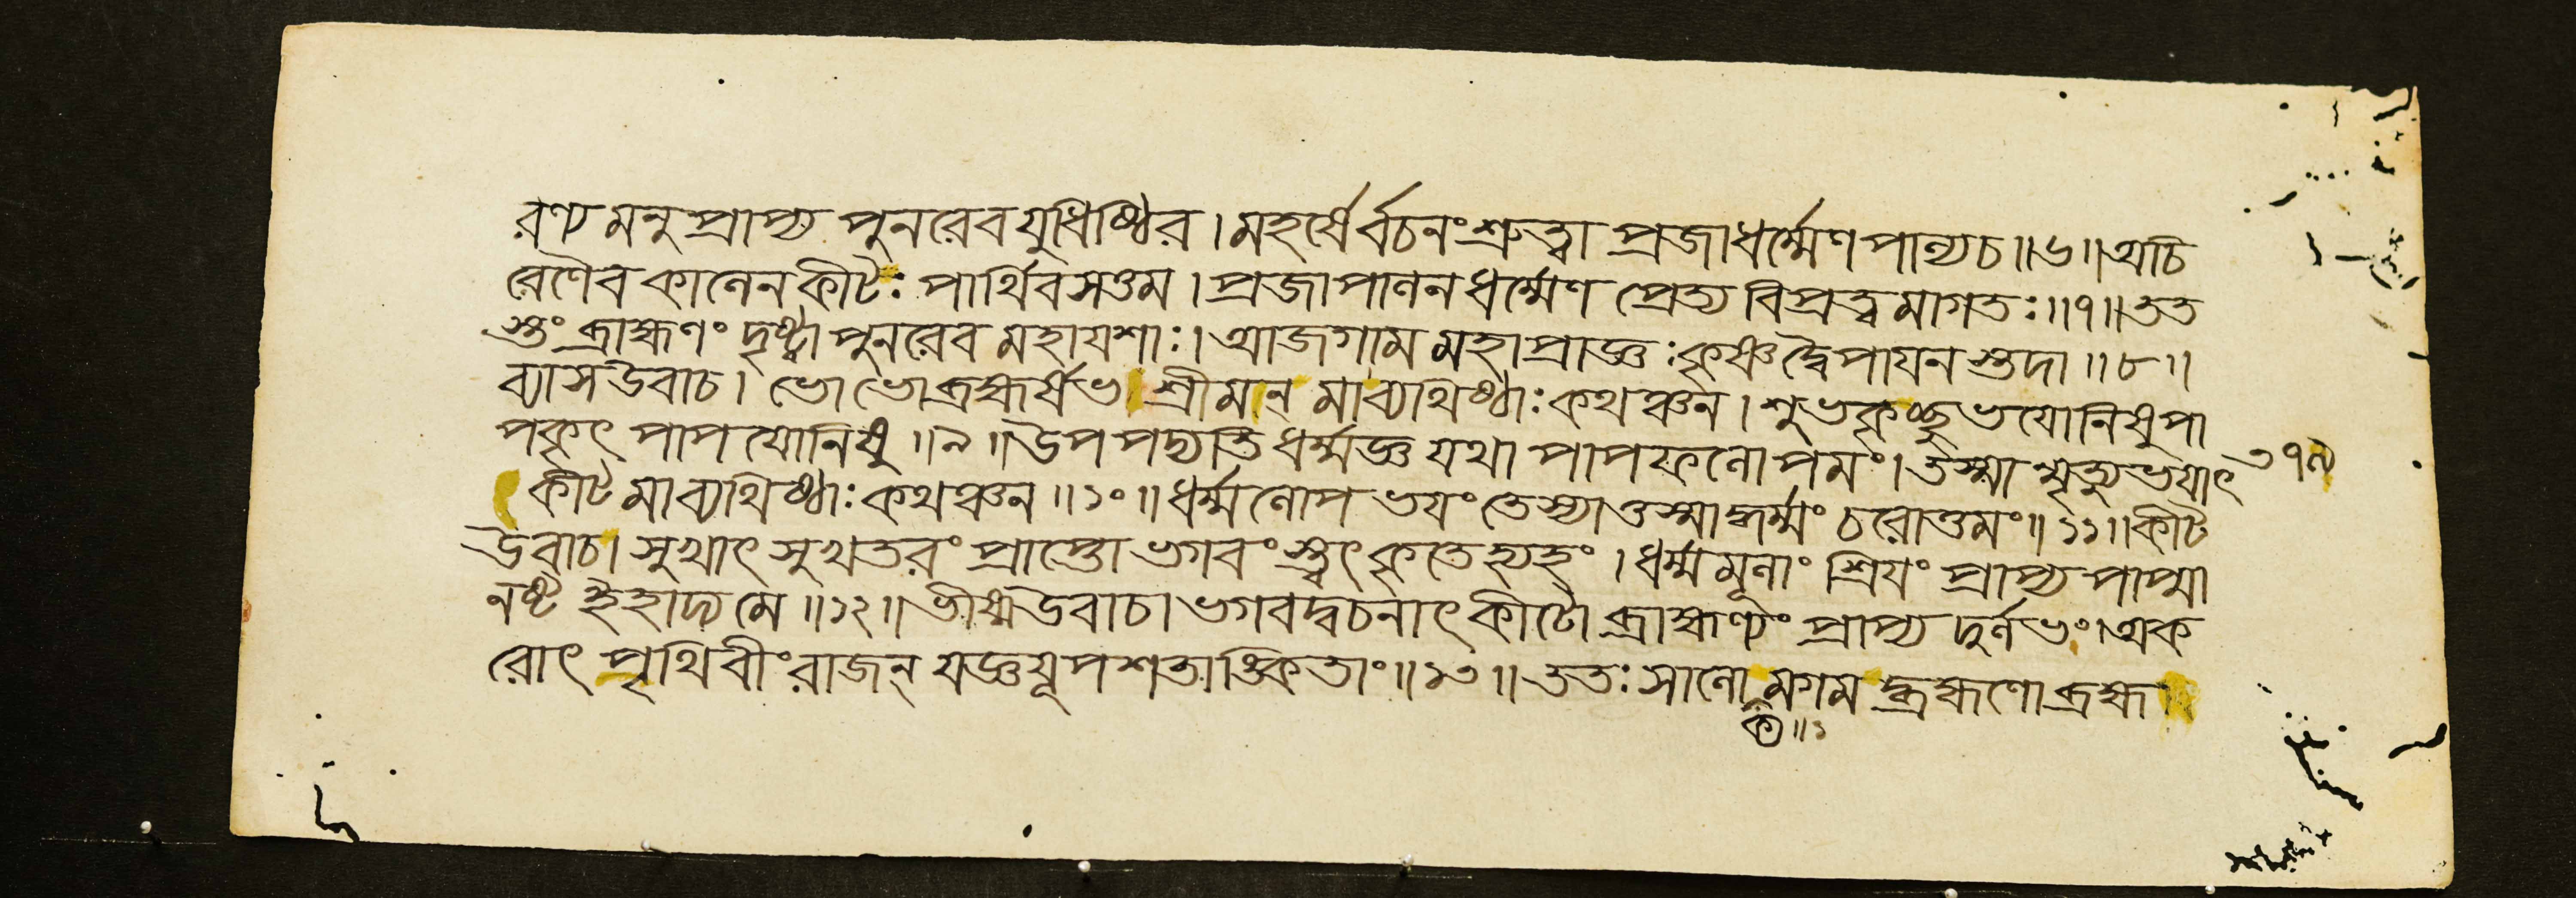 রণ্য মনুপ্রাপ্য পুনরেব যুধিষ্ঠির । মহর্ষের্বচনং শ্রুত্বা প্রজাধর্ম্মেণ পাল্যচ ॥ ৬ ॥ অচি
রেণৈব কালেন কীটঃ পার্থিবসত্তম । প্রজাপালনধর্ম্মেণ প্রেত্য বিপ্রত্বমাগতঃ ॥ ৭ ॥ তত
স্তং ব্রাহ্মণং দৃষ্ট্বা পুনরেব মহাযশাঃ । আজগাম মহাপ্রাজ্ঞঃ কৃষ্ণদ্বৈপাযনস্তদা ॥ ৮ ॥
ব্যাসউবাচ । ভোভো ব্রহ্মর্ষভ শ্রীমান্ মাব্যথিষ্ঠাঃ কথঞ্চন । শুভকৃচ্ছুভযোনিষু পা
পকৃৎ পাপযোনিষু ॥ ৯ ॥ উপপদ্যতি ধর্ম্মজ্ঞ যথা পাপফলোপমং । তস্মান্মৃত্যুভযাৎ
৩৭৯
কীট মাব্যথিষ্ঠাঃ কথঞ্চন ॥ ১০ ॥ ধর্ম্মলোপভযং তেস্যাত্তস্মাদ্ধর্ম্মং চরোত্তমং ॥ ১১ ॥ কীট
উবাচ । সুখাৎ সুখতরং প্রাপ্তো ভগবংস্ত্বৎকৃতেহ্যহং । ধর্ম্মমূলাং শ্রিযং প্রাপ্য পাপ্মা
নষ্ট ইহাদ্য মে ॥ ১২ ॥ ভীষ্মউবাচ । ভগবদ্বচনাৎ কীটো ব্রাহ্মণ্যং প্রাপ্য দুর্লভং । অক
রোৎ পৃথিবীং রাজন্ যজ্ঞযূপশতাঙ্কিতাং ॥ ১৩ ॥ ততঃ সালোমগমদ্ব্রহ্মণো ব্রহ্ম
ক্য ॥ ১